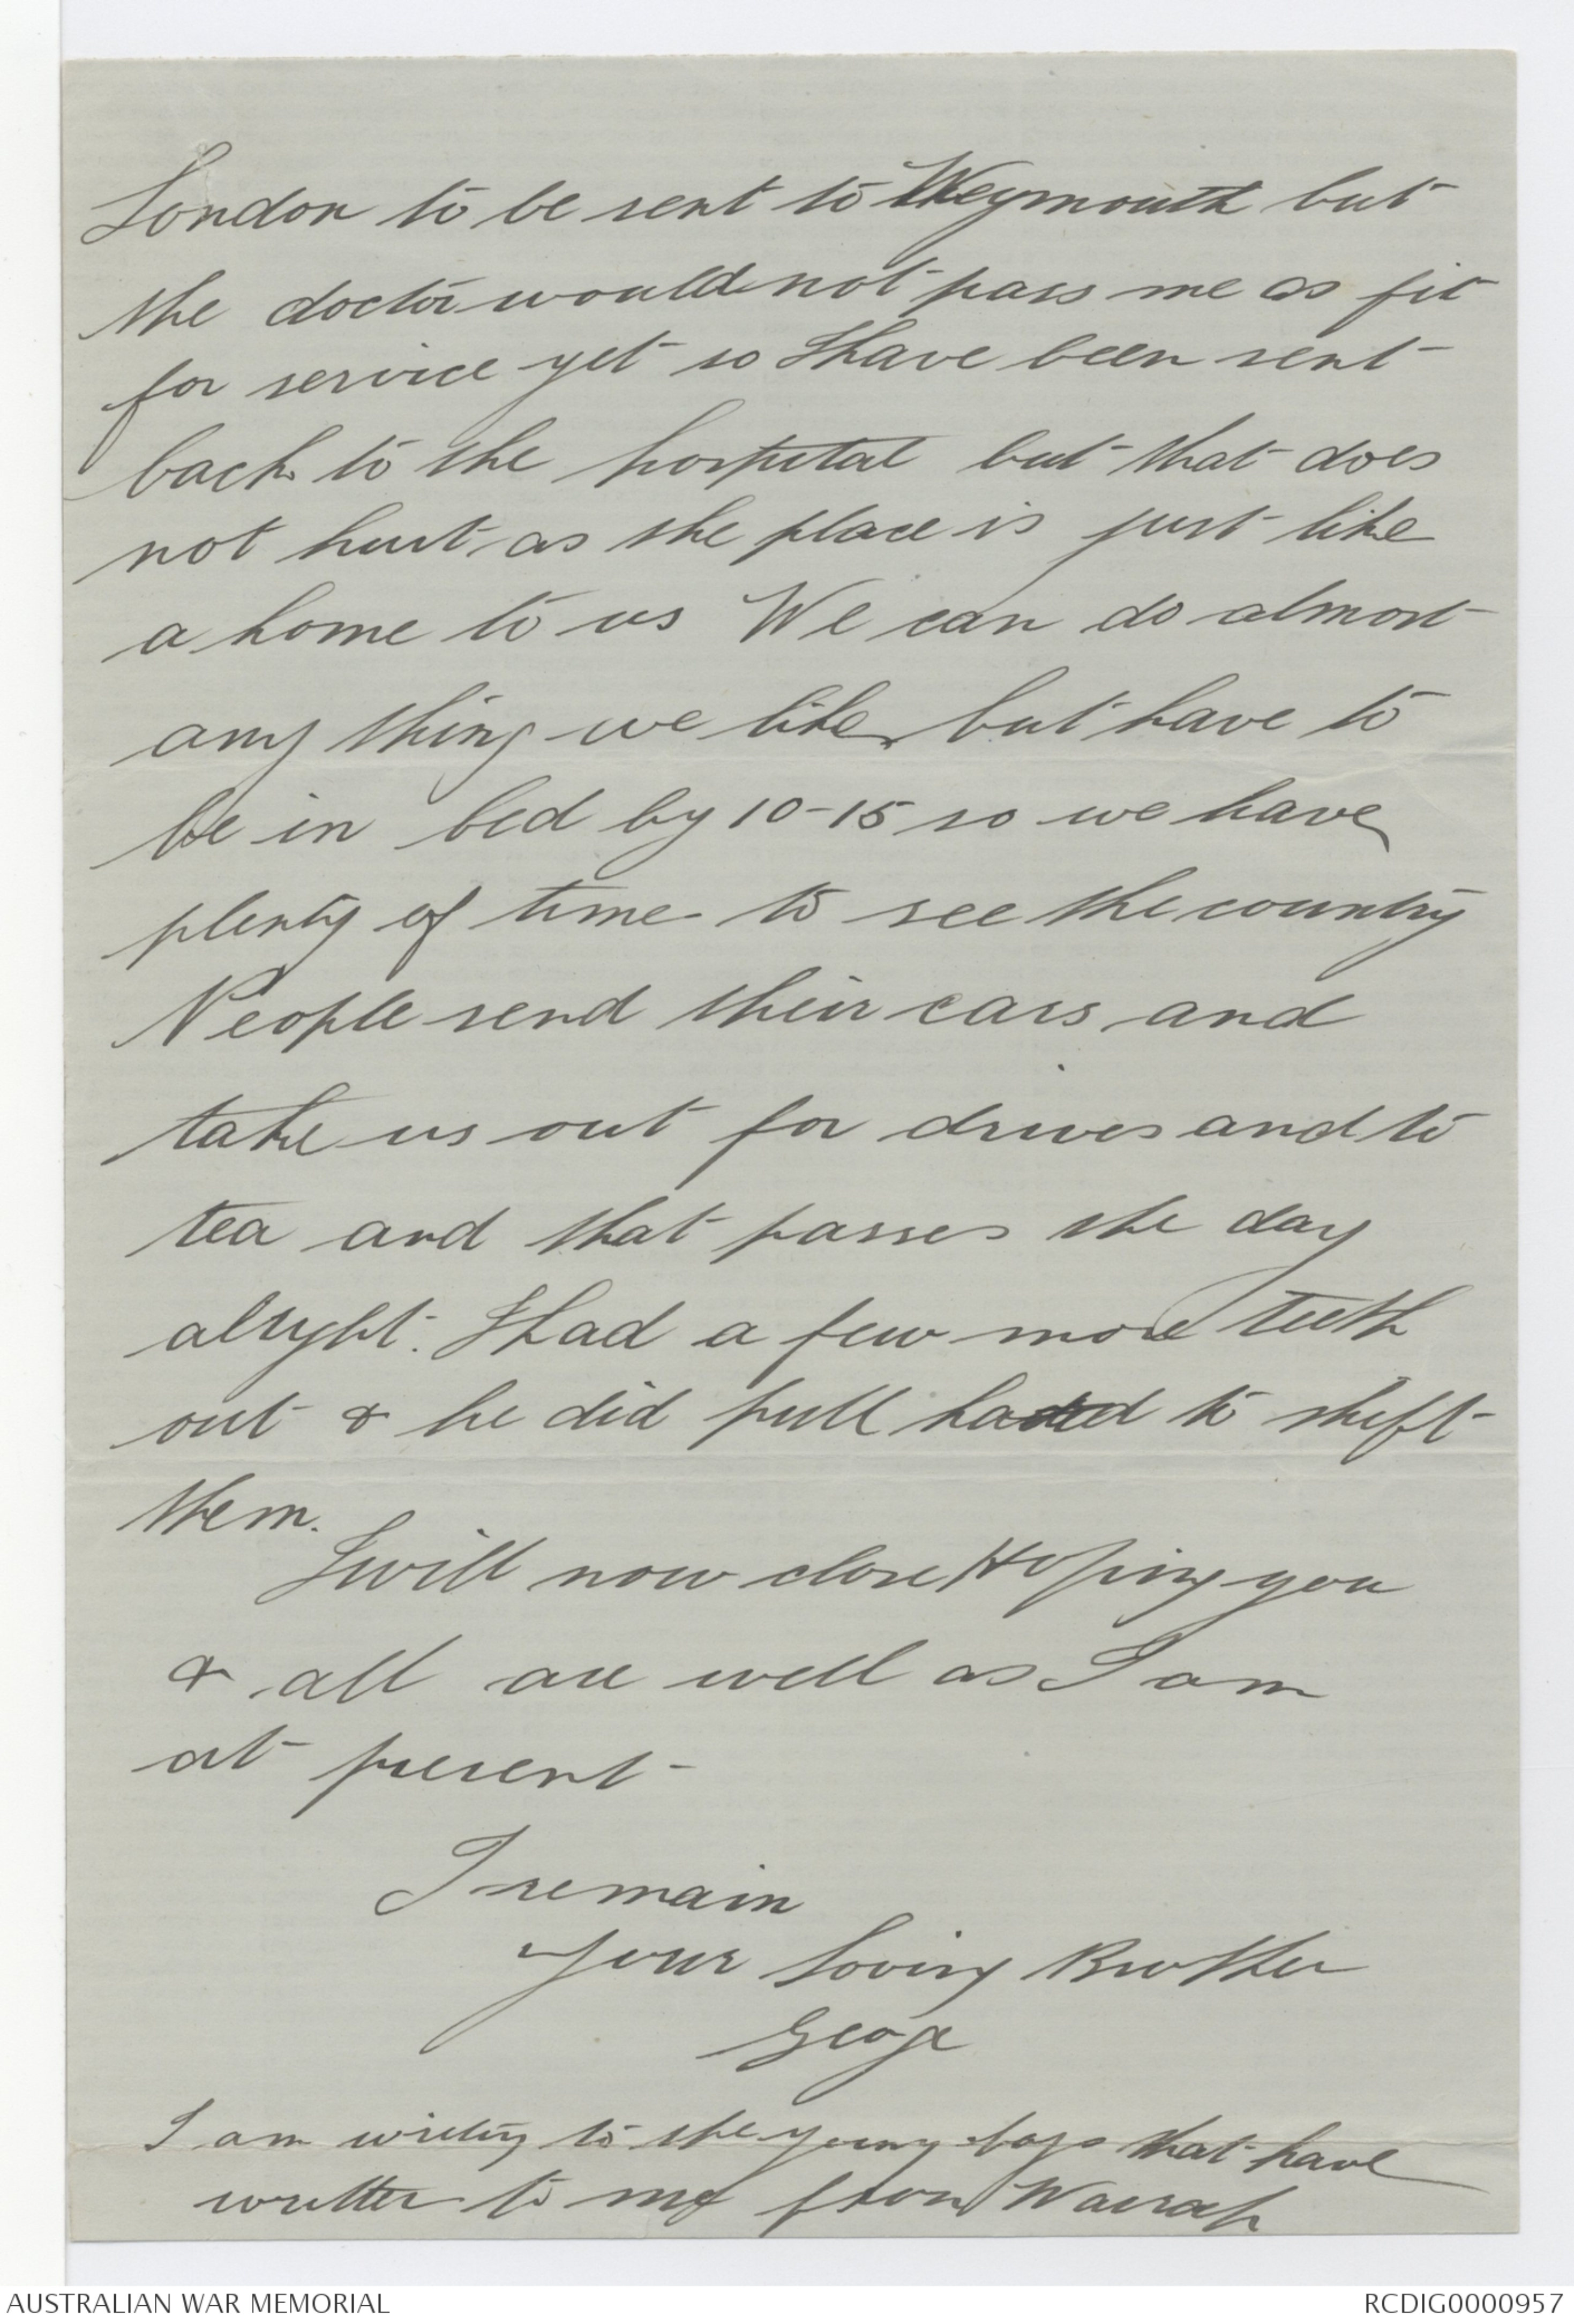 London to be sent to Weymouth but
the doctor would not pass me as fit
for service yet so I have been sent
back to the hospital but that does
not hurt as the place is just like
a home to us We can do almost
any thing we like but have to
be in bed by 10-15 so we have
plenty of time to see the country
People send their cars and
take us out for drives and to
tea and that passes the day
alright. I had a few more teeth
out & he did pull hard to shift
them.
I will now close Hoping you
& all are well as I am
at present
I remain
Your loving Brother
George
I am writing to the young boys that have
written to me from
AUSTRALIAN WAR MEMORIAL
RCDIG0000957